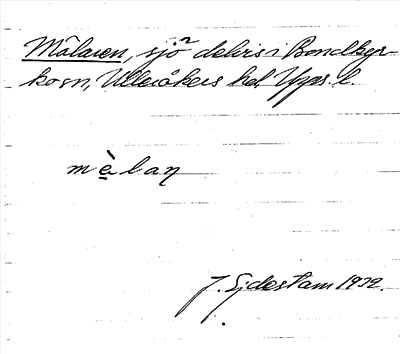 Mälaren, sjön delvis i Bondkyr-
ko sn, Ulleråkers hd, Upps. l.
mèlaŋ
J. Sjdestam 1932.